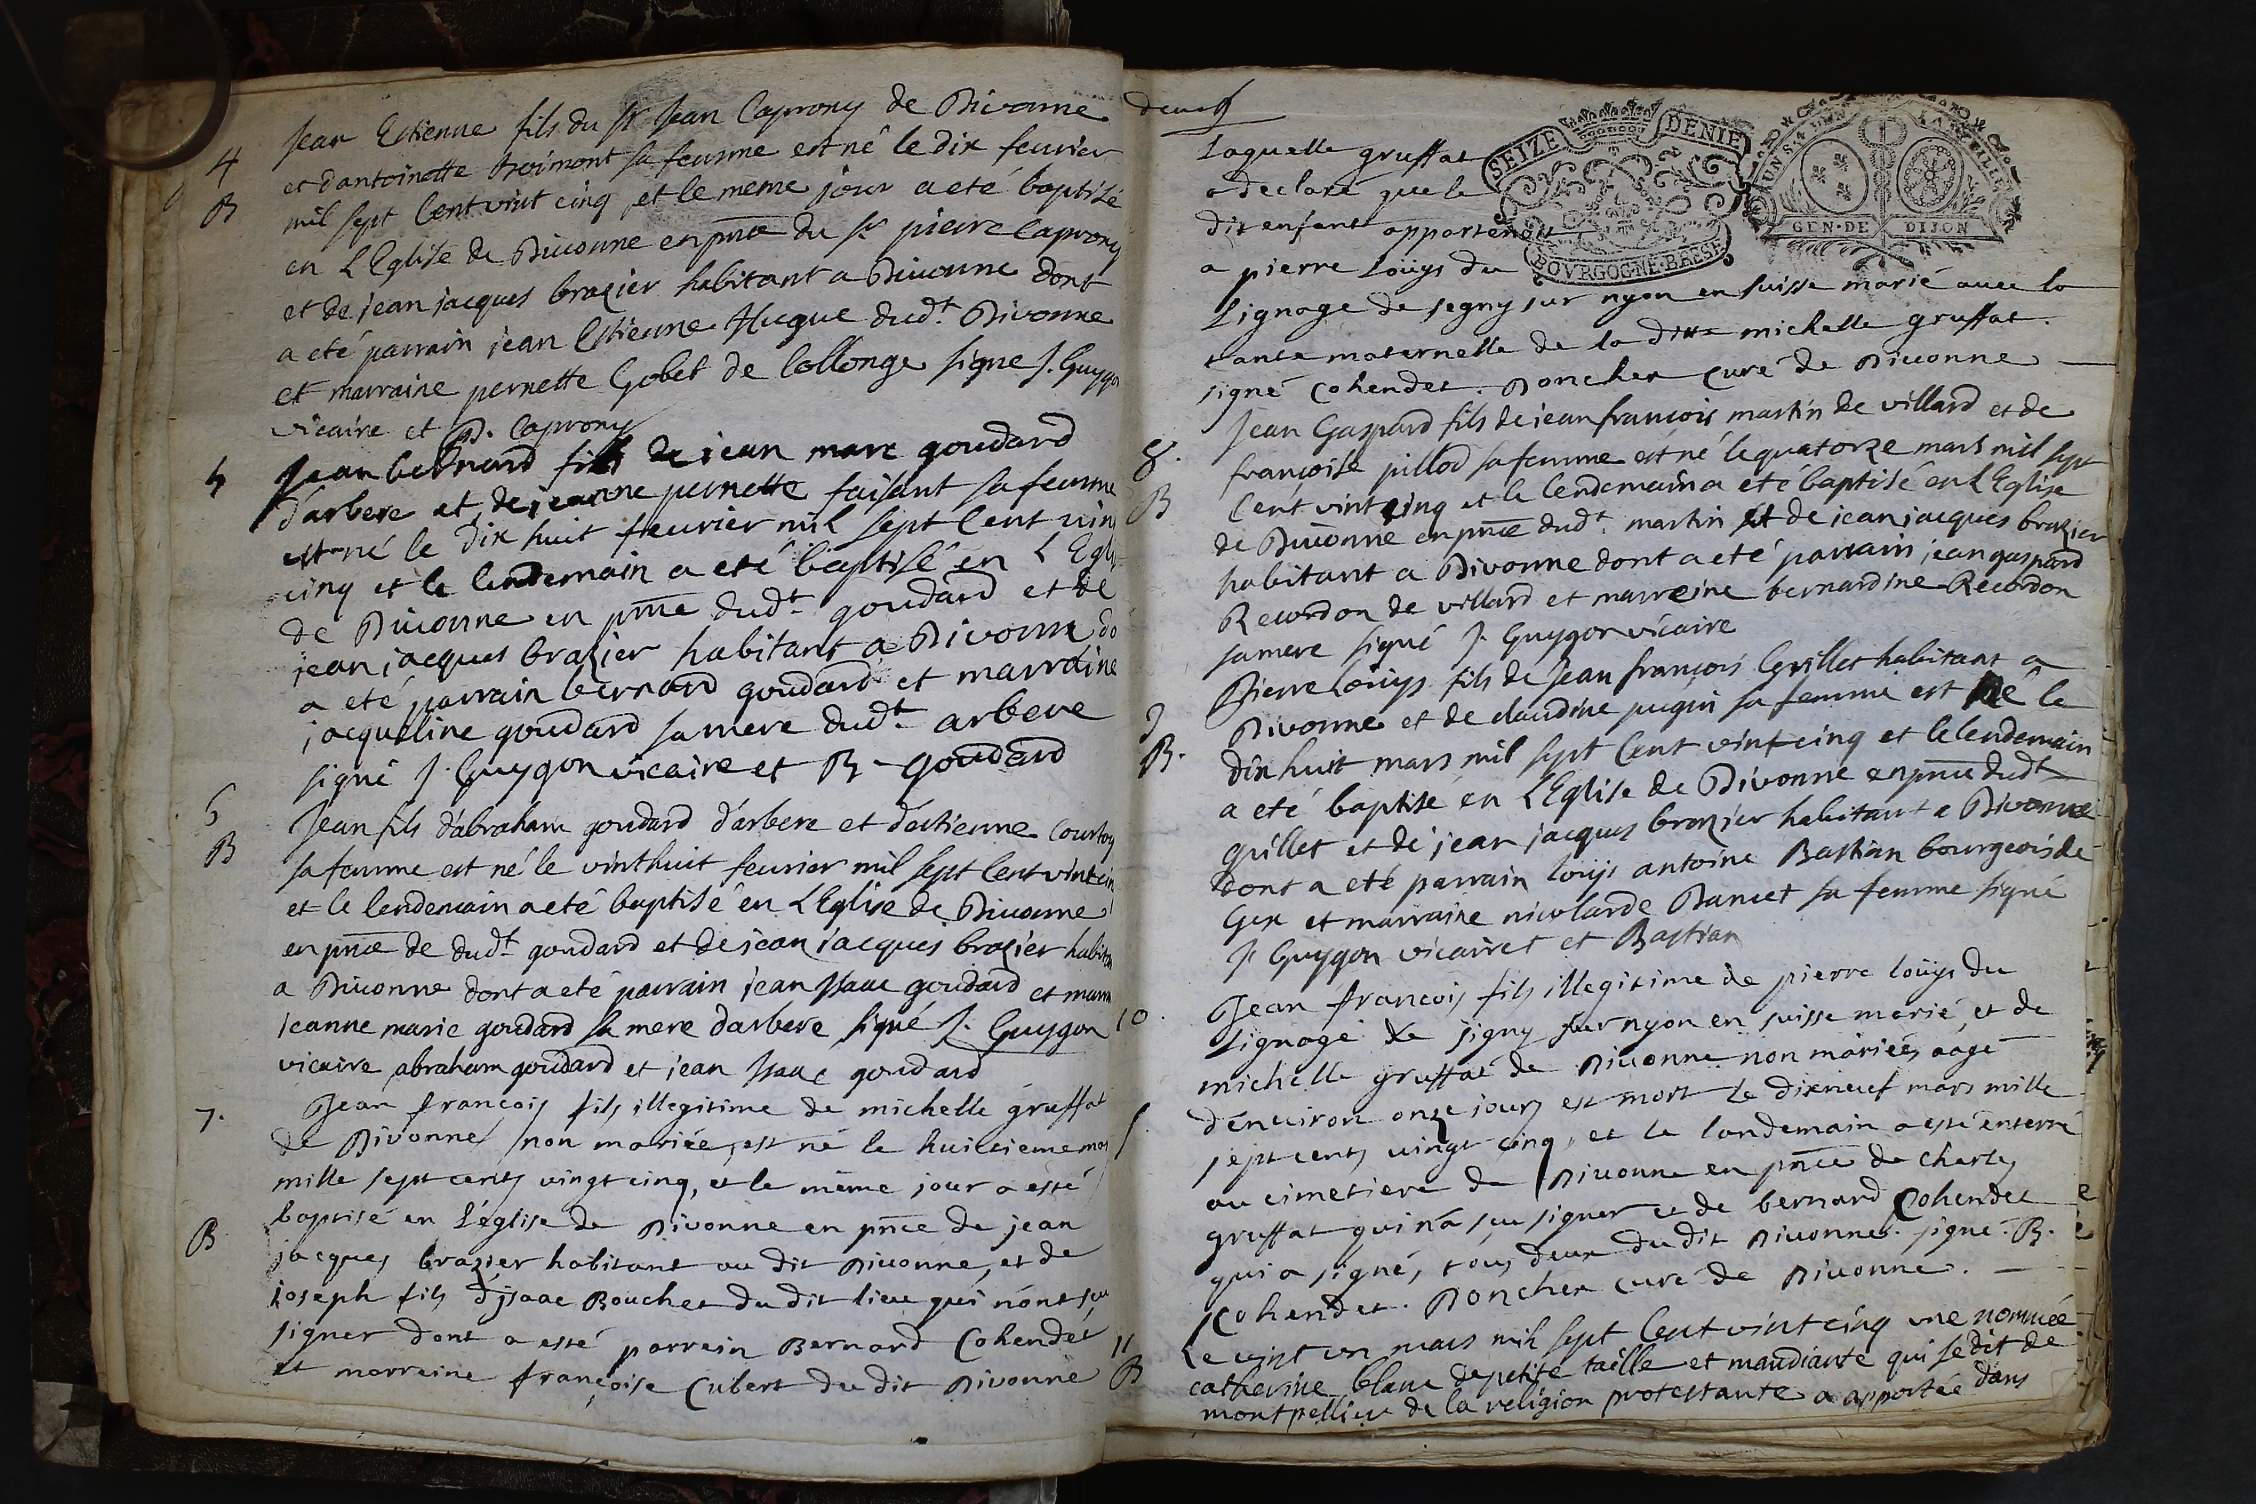 4
B
Jean Estienne fils du Sr Jean Caprony de Divonne
et d'antoinette troimont sa femme est né le dix feurier
mil sept Cent vint cinq et le meme jour a eté baptisé
en L'Eglise de Diuonne en pnce du Sr pierre Caprony
et de jean jacques brazier habitant a Diuonne dont
a eté parrain jean Estienne Hugue dudt. Divonne
et marraine pernette Gobet de Collonge signe J. Guygon
vicaire et P. Caprony
5
Jean bernard fils de jean marc goudard
d'arbere et de jeanne pernette faisant sa femme
est né le dix huit feurier mil sept Cent vint
cinq et le lendemain a eté baptisé en L'Egli
de Diuonne en pnce dudt. goudard et de
jean jacques brazier habitant a Divonne do
a eté parrain bernard goudard et marraine
jacqueline goudard sa mere dudt. arbere
signé J. Guygon vicaire et B. goudard
6
B
Jean fils d'abraham goudard d'arbere et d'estienne Courtoy
sa femme est né le vint huit feurier mil sept Cent vint cin
et le lendemain a eté baptisé en L'Eglise de Diuonne
en pnce de dudt. goudard et de jean jacques brazier habitan
a Diuonne dont a eté parrain jean Isaac goudard et marra
jeanne marie goudard sa mere d'arbere signé J. Guygon
vicaire abraham goudard et jean Isaac goudard
7.
B
Jean francois fils illegitime de michelle gruffat
de Divonne non mariée, est né le huictieme mar
mille sept cents vingt cinq, et le même jour a esté
baptisé en l'église de Divonne en pnce de jean
jacques brazier habitant au dit Diuonne, et de
joseph fils d'jsaac Bouchet du dit lieu qui n'ont sçu
signer dont a esté parrein Bernard Cohendet
et marreine françoise Cubert du dit Divonne
deux
SEIZE DENIE
BOVRGOGNE·BRESSE
UN S. 4 DEN LA FEUILLE
GEN·DE DIJON
Laquelle gruffat
a declaré que le
dit enfant appartenoit
a pierre Loüys du
Lignage de segny sur nyon en suisse marié auec la
tante maternelle de la dite michelle gruffat.
signé Cohendet. Poncher curé de Diuonne
8.
B
Jean Gaspard fils de jean francois martin de villard et de
francoise pillod sa femme est né le quatorze mars mil sept
Cent vint cinq et le lendemain a eté baptisé en L'Eglise
de Diuonne en pnce dudt. martin et de jean jacques brazier
habitant a Divonne dont a eté parrain jean gaspard
Recordon de villard et marreine bernardine Recordon
sa mere signé J. Guygon vicaire
9
B.
Pierre Loüys fils de Jean francois Grillet habitant a
Divonne et de claudine pugin sa femme est né le
dix huit mars mil sept Cent vint cinq et le lendemain
a eté baptisé en L'Eglise de Divonne en pnce dudt
grillet et de jean jacques brazier habitant a Divonne
dont a eté parrain loüys antoine Bastian bourgeois de
Gex et marraine nicolarde Dancet sa femme signé
J. Guygon vicairet et Bastian
10.
S
Jean francois fils illegitime de pierre loüys du
Lignage de signy sur nyon en suisse marié, et de
michelle gruffat de Diuonne non mariée, aagé
d'enuiron onze jours est mort le dixneuf mars mille
sept cents vingt cinq, et le landemain a esté enterré
au cimetiere de Diuonne en pnce de charles
gruffat qui n'a sçu signer et de bernard Cohendet
qui a signé, tous deux du dit Diuonne. signé. B.
Cohendet. Poncher curé de Diuonne.
11
B
Le vint un mars mil sept Cent vint cinq une nommée
catherine blanc de petite taille et mandiante qui se dit de
montpellier de la religion protestante a apportée dans